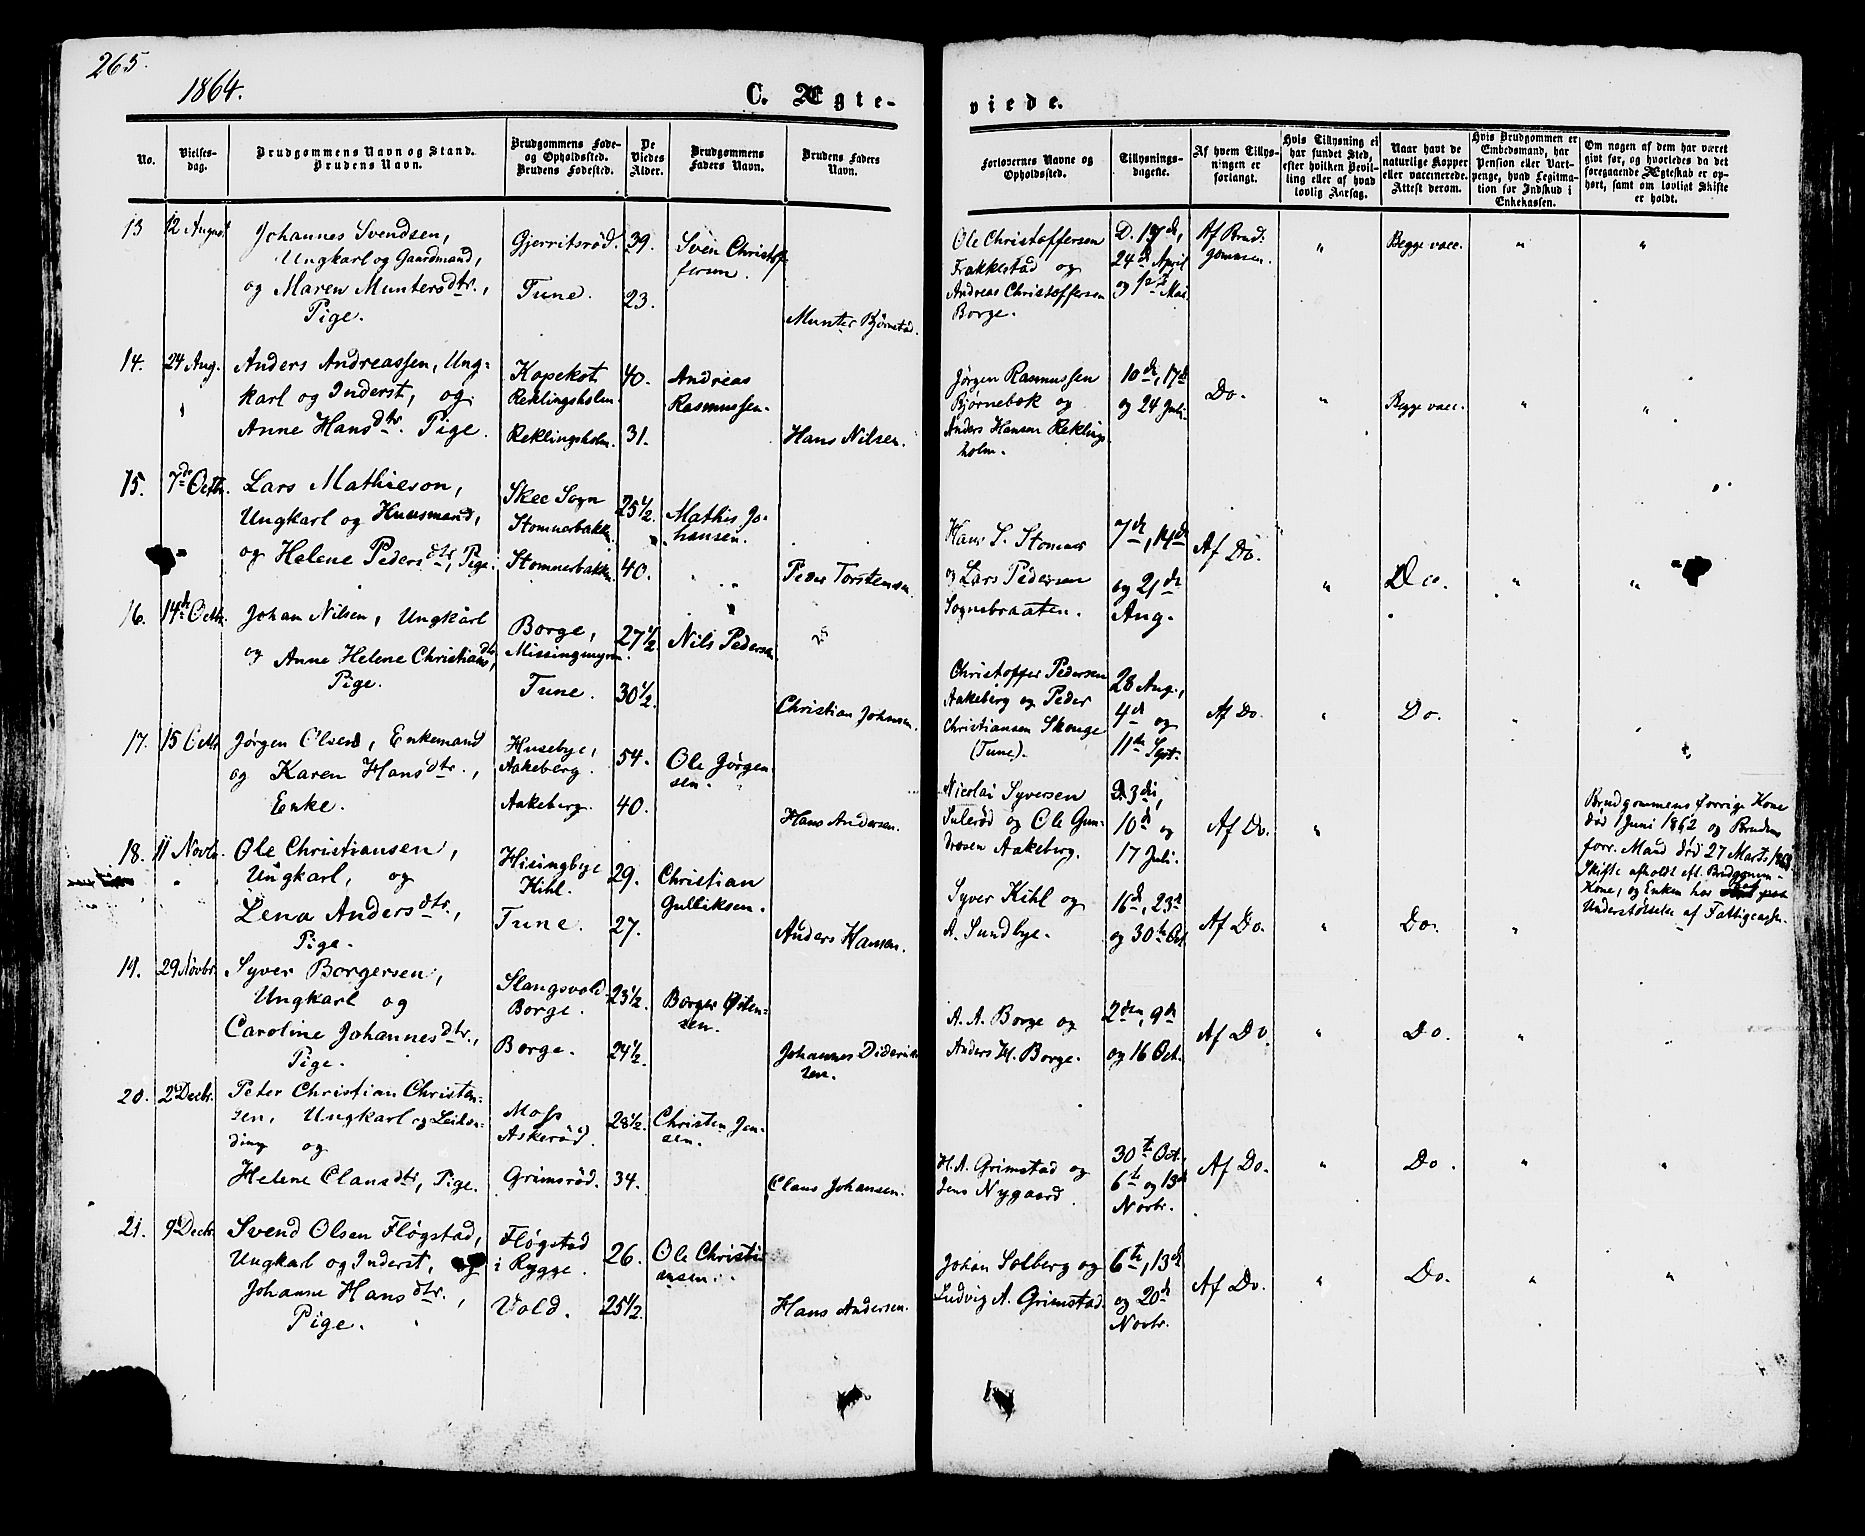 265.
1864.
C. Ægte-
viede.
No.
Vielses-
dag.
Brudgommens Navn og Stand.
Brudens Navn.
Brudgommens Føde-
og Opholdsted.
Brudens Fødested.
De
Viedes
Alder.
Brudgommens
Faders Navn.
Brudens Faders
Navn.
Forlovernes Navne og
Opholdssted.
Tillysnings-
dagene.
Af hvem Tillys-
ningen er
forlangt.
Hvis Tillysning ei
har fundet Sted,
efter hvilken Bevil-
ling eller af hvad
lovlig Aarsag.
Naar havt de
naturlige Kopper
eller vaccinerede.
Attest derom.
Hvis Brudgommen er
Embedsmand, har
Pension eller Vart-
penge, hvad Legitima-
tion for Indskud i
Enkekassen.
Om nogen af dem har været
gift før, og hvorledes da det
foregaaende Ægteskab er op-
hørt, samt om lovligt Skifte
er holdt.
13 12 August Johannes Svendsen, Gjerritsrød. 39. Sven Christof-
Ungkarl og Gaardmand, fersen.
og Maren Muntersdtr., Tune. 23.
Pige. Munter Bjørnstad.
Ole Christoffersen D. 19de, Af Brud-
Frakkestad og 24de April gommen. " Begge vacc. " "
Andreas Christoffersen og 1ste Mai
Borge.
14. 24 Aug. Anders Andreassen, Ung- Kopekot 40. Andreas
karl og Inderst, og Reklingsholm. Rasmussen.
Anne Hansdtr. Pige. Reklingsholm. 31. Hans Nilsen.
Jørgen Rasmussen 10de, 17de
Bjørnebæk og og 24 Juli. Do. " Begge vacc. " "
Anders Hansen Reklings-
holm.
15. 7de Octbr. Lars Mathieson, Skee Sogn 25 1/2. Mathis Jo-
Ungkarl og Huusmand, Stomnerbakken. hansen.
og Helene Pedersdtr, Pige. Stomnerbakken 40. Peder Torstensen
Hans L. Stomner 7de, 14de Af Do.
og Lars Pedersen og 21de " Do. " "
Sognsbraaten. Aug.
16. 14de Octbr. Johan Nilsen, Ungkarl Borge, 27 1/2 Nils Pedersen 25
og Anne Helene Christiansdtr, Missingmyren.
Pige. Tune. 30 1/2. Christian Johnsen.
Christoffer Pedersen 28 Aug.,
Aakeberg og Peder 4de og Af Do. " Do. "
Christiansen Skonge 11te Sept.
(Tune).
17. 15 Octbr Jørgen Olsen, Enkemand Husebye, 54. Ole Jørgen-
og Karen Hansdtr., Aakeberg. sen.
Enke. Aakeberg. 40. Hans Andersen.
Nicolai Syversen D. 3die,
Sulerød og Ole Gun- 10de og Af Do. "
drosen Aakeberg. 17 Juli.
Brudgommens forrige Kone
død 1 Juni 1862 og Brudens
forr. Mand død 27 Marts 1863.
Skifte afholdt eft. Brudgommens
Kone, og Enken har
Understøttelse af Fattigcasse.
18. 11 Novbr. Ole Christiansen, Hisingbye 29. Christian
Ungkarl, og Kihl. Gulliksen.
Lena Andersdtr., Tune. 27.
Pige. Anders Hansen.
Syver Kihl og 16de, 23de
A. Sundbye. og 30te Oct. Af Do. " Do. "
19. 29 Novbr. Syver Borgersen, Slangsvold 23 1/2. Borger Østen-
Ungkarl og Borge. sen.
Caroline Johannesdtr., Borge. 24 1/2. Johannes Diderik-
Pige. sen.
A. A. Borge og 2den, 9de Af Do. " Do. "
Anders H. Borge. og 16 Oct.
20. 2 Decbr. Peter Christian Christen- Moss 28 1/2. Christen Jen-
sen, Ungkarl og Leilæn- Askerød. sen.
ding og
Helene Clausdtr, Pige. Grimsrød. 34. Claus Johansen.
H. A. Grimstad og 30te Oct. Af Do. " Do. " "
Jens Nygaard 6te og 13de
Novbr.
21. 9 Decbr. Svend Olsen Fløgstad, Fløgstad 26. Ole Christi-
Ungkarl og Inderst, og i Rygge. ansen.
Johanne Hansdtr., Vold. 25 1/2. Hans Andersen.
Pige.
Johan Solberg og 6te, 13de Af Do. " Do. " "
Ludvig A. Grimstad. og 20de
Novbr.